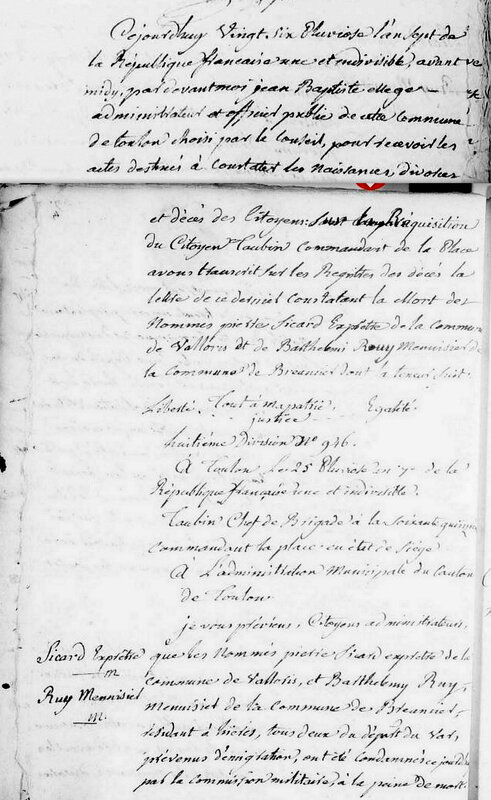 Cejourdhuy Vingt Six Pluviose l'an Sept de
la République francaise une et indivisible, avant
midy, par devant moi jean Baptiste
administrateur et officier public de cette commune
de toulon choisi par le Conseil, pour recevoir les
actes destinés à Constater les Naissances, divorces
et décès des Citoyens: Sur la Réquisition
du Citoyen Taubin Commandant de la Place
avons transcrit sur les Registres des décès la
lettre de ce dernier Constatant la Mort des
Nommés pierre Sicard Exprêtre de la Commune
de Valloris et de Barthelmi Rouy Menuisier de
la Commune de Breannier dont la teneur suit.
Liberté. Tout à ma patrie. Egalité
justice
huitième division No 946.
À Toulon le 25 Pluviose an 7e de la
République française une et indivisible.
Taubin Chef de Brigade à la Soixante quinze
Commandant la place en état de Siége
A L'administration Municipale du Canton
de Toulon
je vous préviens, Citoyens administrateurs,
Sicard Exprêtre
m
que les Nommés pierre Sicard exprêtre de la
Commune de Valloris, et Barthelemy Ruy,
Ruy Menuisier
m.
menuisier de la Commune de Breannier,
résidant à hieres, tous deux du départ du Var,
prévenus d'émigration, ont été Condamnés
par la Commission militaire, à la peine de mort.